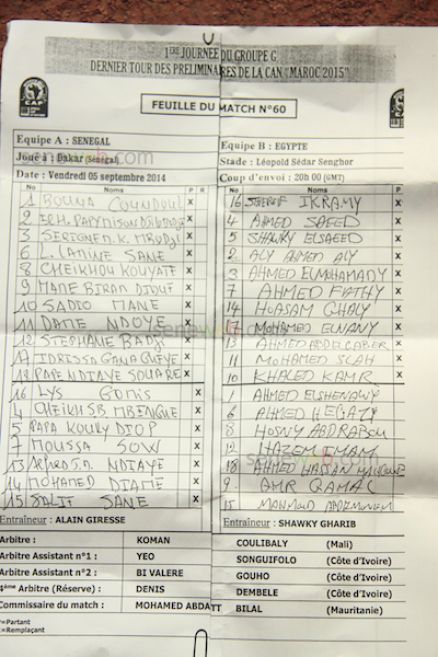 1ERE JOURNEE DU GROUPE G
DERNIER TOUR DES PRELIMINAIRES DE LA CAN "MAROC 2015"
CAF
FEUILLE DU MATCH N°60
Equipe A : SENEGAL
Joué à : Dakar (Sénégal)
Date : Vendredi 05 septembre 2014
Equipe B : EGYPTE
Stade : Léopold Sédar Senghor
Coup d'envoi : 20h 00 (GMT)
No Noms P R
1 BOUNA COUNDOUL X
2 PAPY X
3 SERIGNE M.K. MBODJI X
6 L. LAMINE SANE X
8 CHEIKHOU KOUYATE X
9 MAME BIRAM DIOUF X
10 SADIO MANE X
11 DAME NDOYE X
12 STEPHANE BADJI X
17 IDRISSA GANA GUEYE X
18 PAPE NDIAYE SOUARE X
16 LYS GOMIS X
4 CHEIKH SB MBENGUE X
5 PAPA KOULY DIOP X
7 MOUSSA SOW X
13 NDIAYE X
14 MOHAMED DIAME X
15 SALIF SANE X
Entraîneur : ALAIN GIRESSE
No Noms P R
16 SHERIF IKRAMY X
4 AHMED SAEED X
5 SHAWKY ELSAEED X
2 ALY AHMED ALY X
3 AHMED ELMOHAMADY X
7 AHMED FATHY X
14 HOSSAM GHALY X
17 MOHAMED ELNANY X
13 AHMED ABDELGABER X
11 MOHAMED SLAH X
10 KHALED KAMR X
1 AHMED ELSHENAWY X
6 AHMED HEGAZY X
8 HOSNY ABDRABOU X
12 HAZEM IMAM X
18 AHMED HASSAN X
9 AMR GAMAL X
15 MAHMOUD ABDELMONEM X
Entraîneur : SHAWKY GHARIB
Arbitre : KOMAN COULIBALY (Mali)
Arbitre Assistant n°1 : YEO SONGUIFOLO (Côte d'Ivoire)
Arbitre Assistant n°2 : BI VALERE GOUHO (Côte d'Ivoire)
4ème Arbitre (Réserve) : DENIS DEMBELE (Côte d'Ivoire)
Commissaire du match : MOHAMED ABDATT BILAL (Mauritanie)
P=Partant
R=Remplaçant